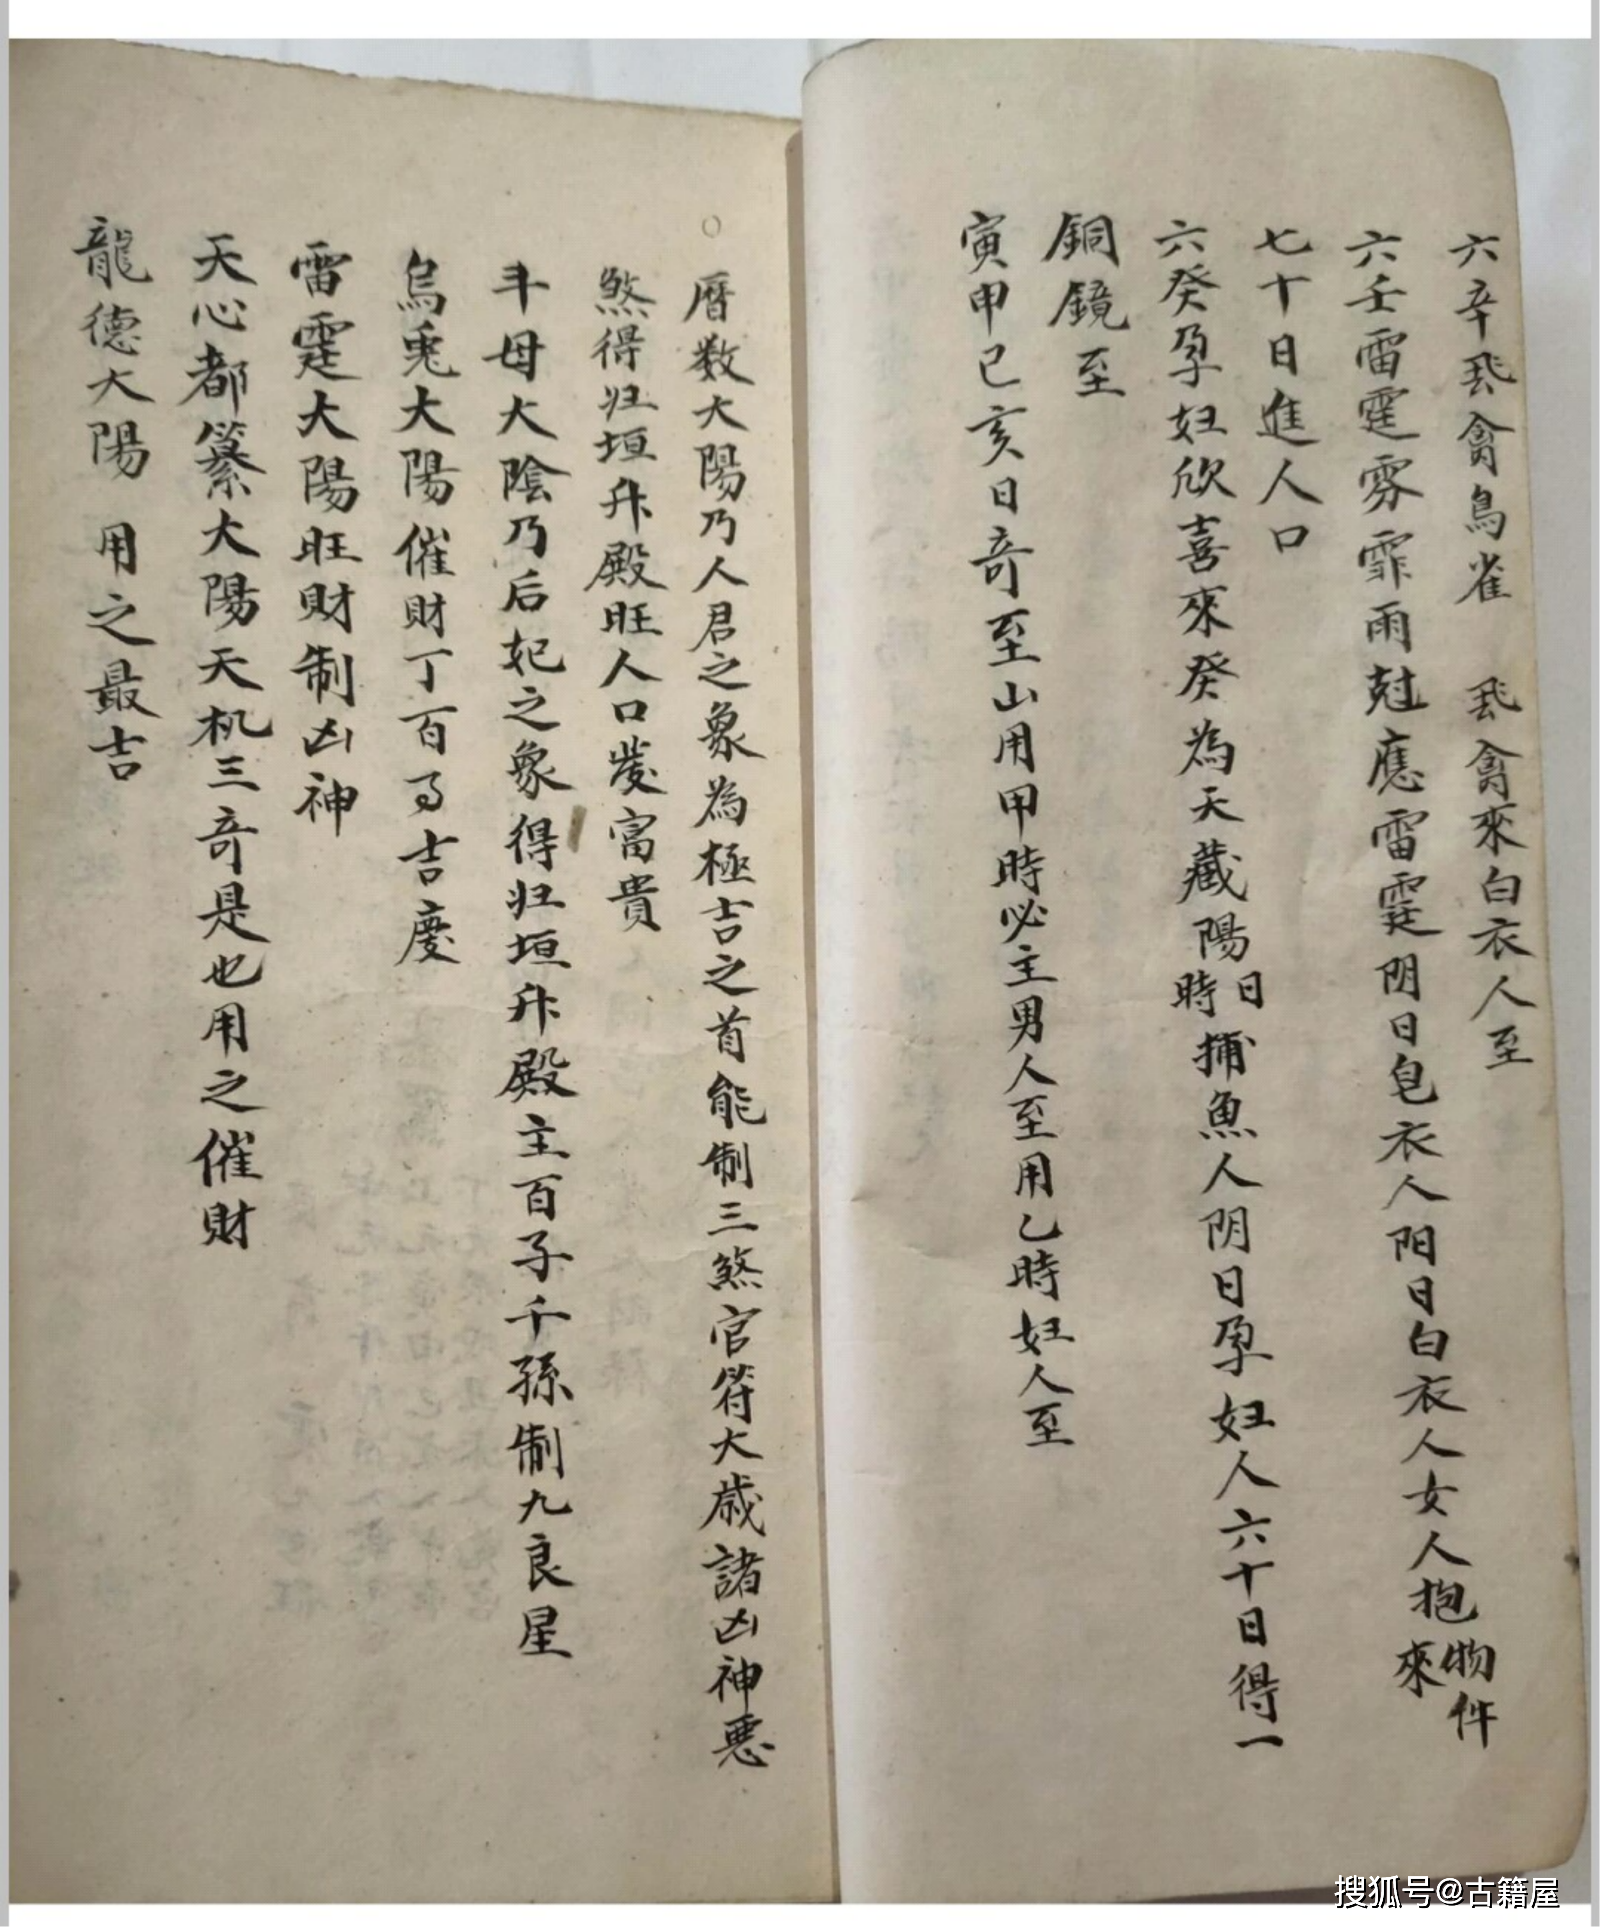 六辛飛禽鳥雀　飛禽來白衣人至
六壬雷霆雰霏雨尅應雷霆阴日皂衣人阳日白衣人女人抱物件來
七十日進人口
六癸孕妇欣喜來癸為天藏陽日時捕魚人阴日孕妇人六十日得一
銅鏡至
寅申巳亥日奇至山用甲時必主男人至用乙時妇人至
○
曆数大陽乃人君之象為極吉之首能制三煞官符大歲諸凶神惡
煞得归垣升殿旺人口發富貴
斗母大陰乃后妃之象得归垣升殿主百子千孫制九良星
烏兎大陽催財丁百事吉慶
雷霆大陽旺財制凶神
天心都纂大陽天机三奇是也用之催財
龍德大陽　用之最吉
搜狐号@古籍屋